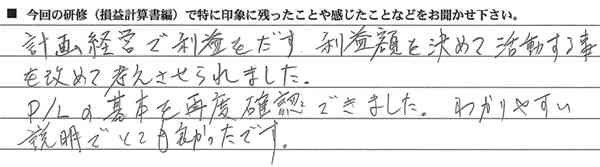 ■ 今回の研修（損益計算書編）で特に印象に残ったことや感じたことなどをお聞かせ下さい。
計画経営で利益をだす 利益額を決めて活動する事
を改めて考えさせられました。
P/Lの基本を再度確認できました。 わかりやすい
説明でとても良かったです。